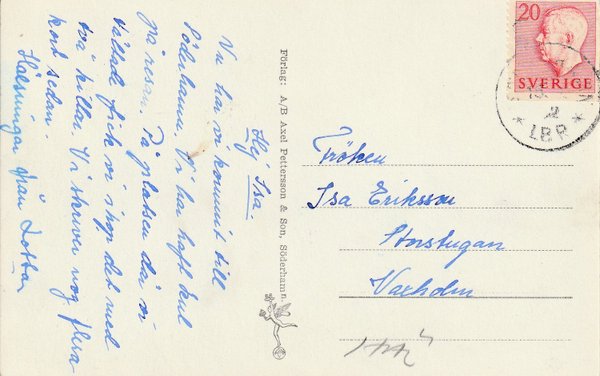 Hej Isa.
Nu har vi kommit till
Söderhamn. Vi har haft kul
på resan. På platsen där vi
tältade fick vi ihop det med
två killar. Vi skriver nog flera
kort sedan.
Hälsningar från Lotta
Förlag: A/B Axel Pettersson & Son, Söderhamn.
20
SVERIGE
2
* LBR *
Fröken
Isa Eriksson
Storstugan
Vaxholm